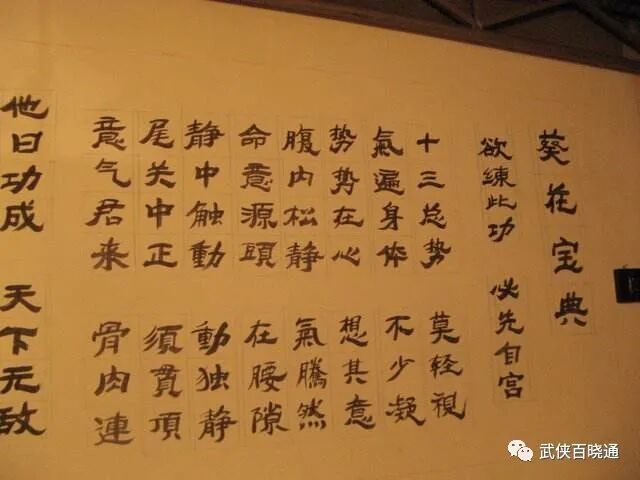 葵花宝典
欲練此功 必先自宫
十三总势 莫轻視
氣遍身体 不少凝
势势在心 想其意
腹内松静 氣騰然
命意源頭 在腰隙
静中触動 動独静
尾关中正 須貫頂
意气君来 骨肉連
他日功成 天下无敌
武侠百晓通